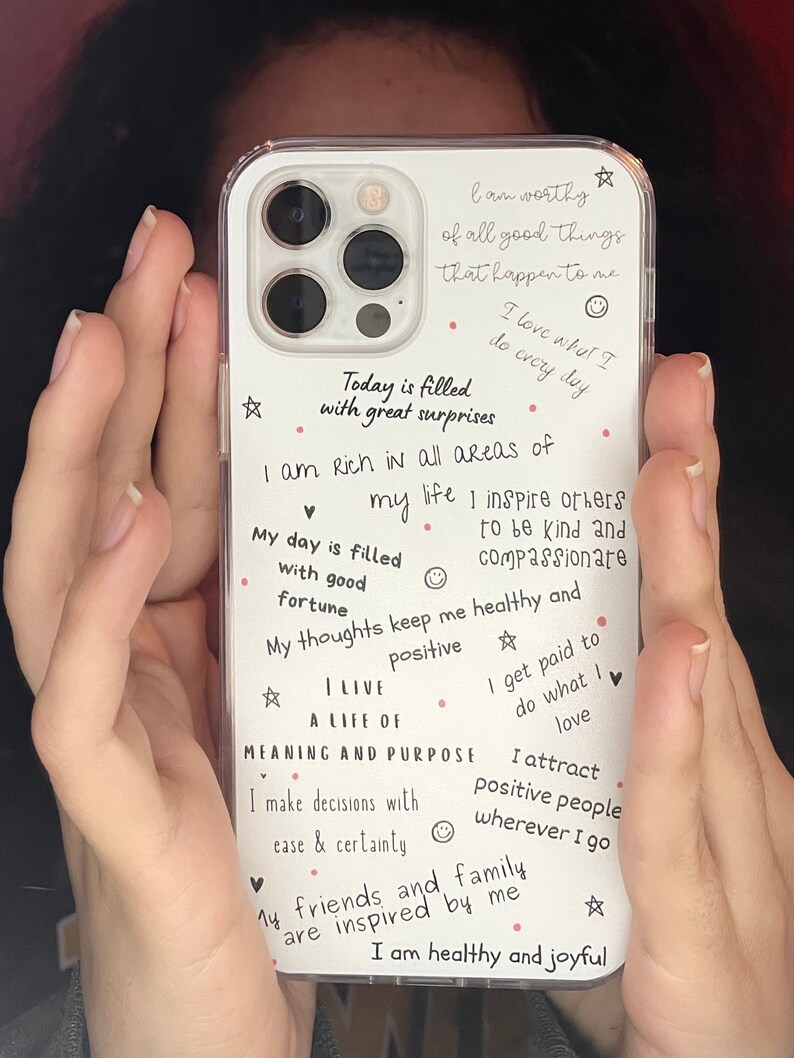 I am worthy
of all good things
that happen to me
I love what I
do every day
Today is filled
with great surprises
I am Rich iN all aReas of
my life
I inspire others
to be kind and
compassionate
My day is filled
with good
fortune
My thoughts keep me healthy and
positive
I get paid to
do what I
love
I LIVE
A LIFE OF
MEANING AND PURPOSE
I attract
positive people
wherever I go
I make decisions with
ease & certainty
My friends and family
are inspired by me
I am healthy and joyful